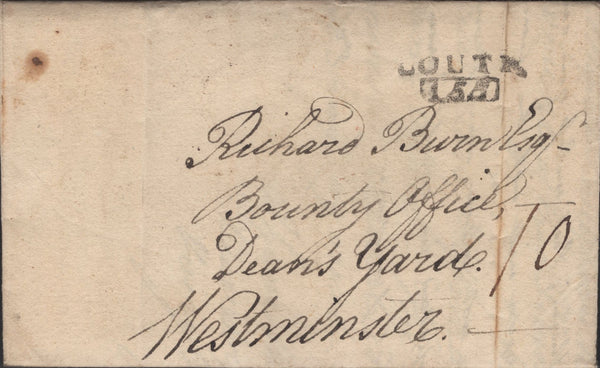 LOUTH
155
Richard Burn Esqr
Bounty Office,
Dean's Yard.
Westminster.
10